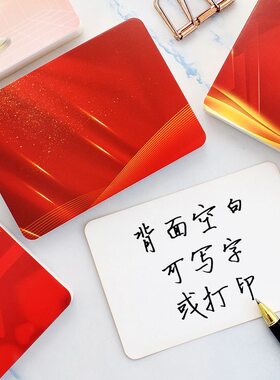 背面空白
可写字
或打印